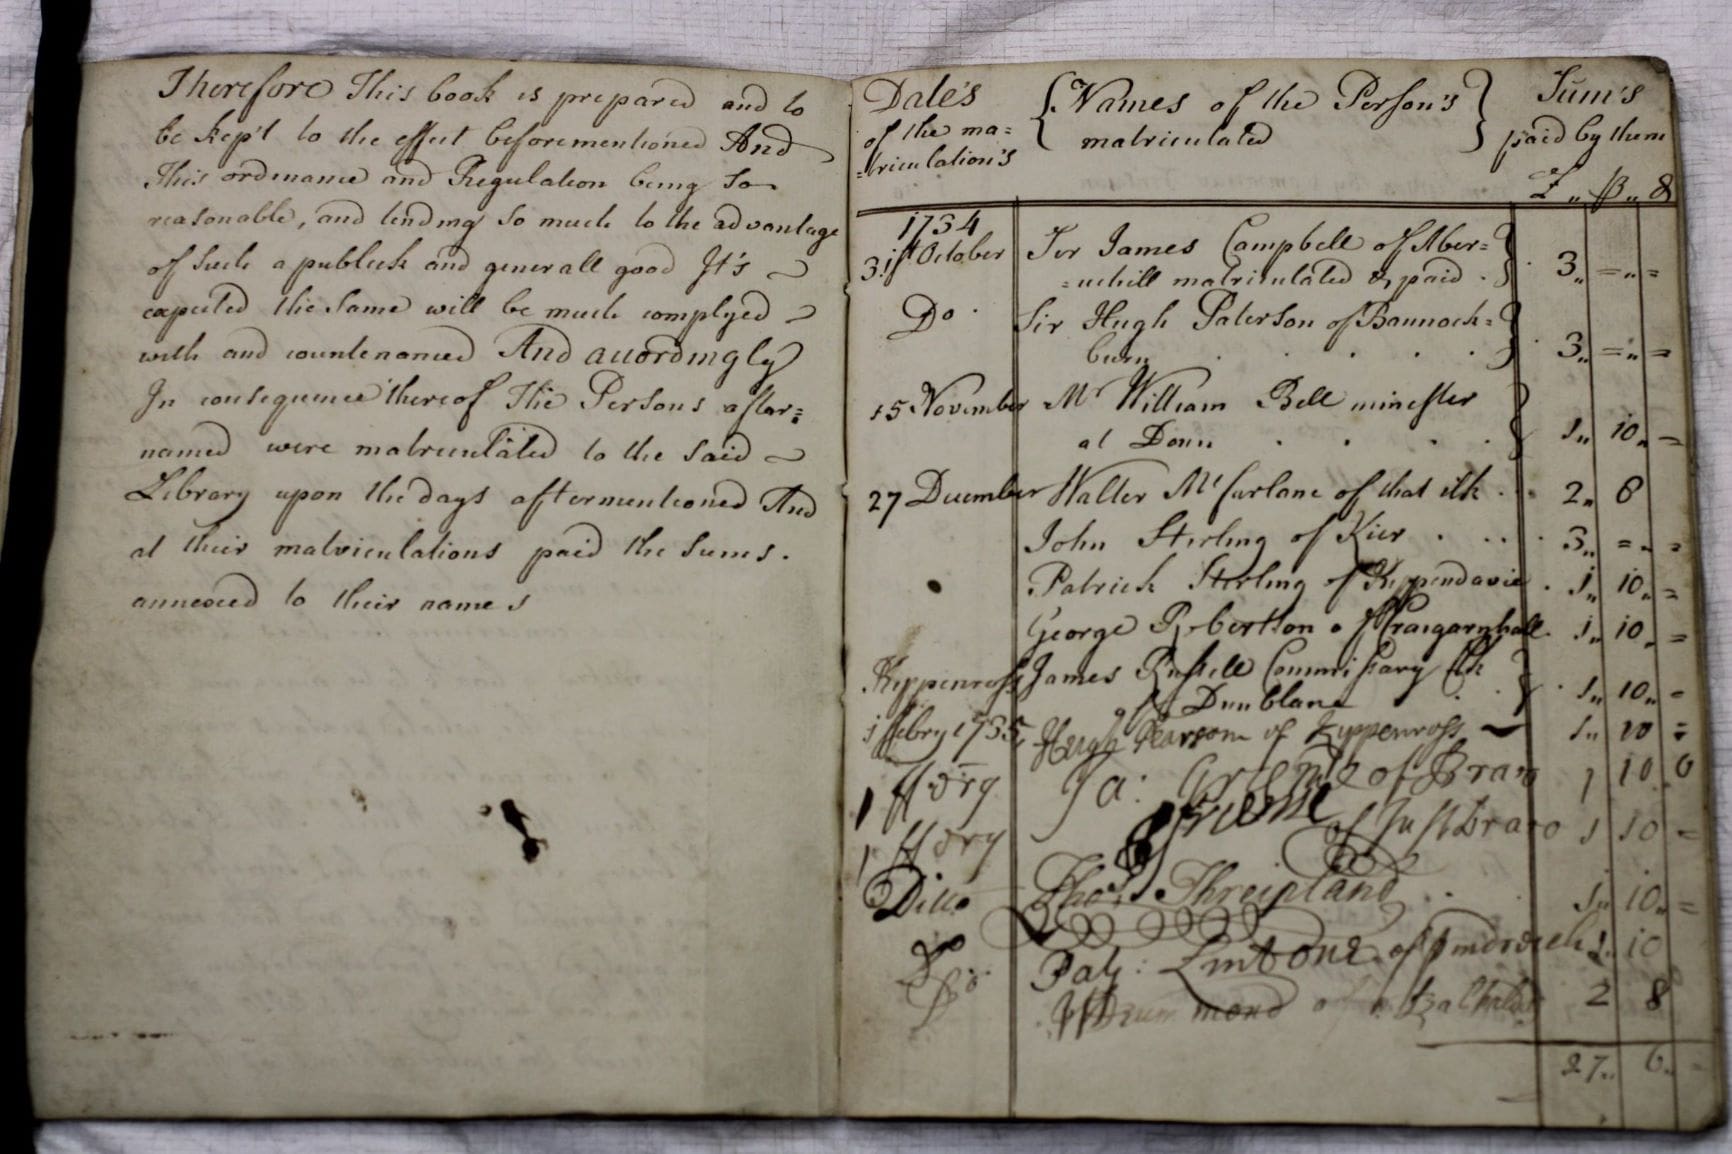 Therefore This book is prepared and to
be kep't to the effect beforementioned And
This ordinance and Regulation being so
reasonable, and tending so much to the advantage
of such a publick and generall good It's
expected the same will be much complyed
with and countenanced And accordingly
In consequence thereof The Persons after=
named were matriculated to the said
Library upon the days aftermentioned And
at their matriculations paid the sums.
annexed to their names
Date's
of the ma=
=triculation's
Names of the Person's
matriculated
Sum's
paid by them
£ ,, ß ,, 8
1734
31st October Sir James Campbell of Aber=
=uchill matriculated & paid . 3,, =,, =
Do. Sir Hugh Paterson of Bannock=
burn . . . . 3,, =,, =
15 November Mr William Bell minister
at Doun . . . . 1,, 10,, =
27 December Walter Mcfarlane of that ilk . . 2,, 8
John Stirling of Kier . . . . 3,, =,, =
Patrick Stirling of Kippendavie . 1,, 10,, =
George Robertson of Craigarnhall . 1,, 10,, =
James Russell Commissary Clk
of Dunblane . . 1,, 10,, =
Kippenross
1 ffebry 1735, Hugh Pearson of Kippenross 1,, 10 =
1 ffbry Ja: Græme of Bran 1 10 0
1 ffbry Græme of 1 10 =
Ditto Thos. Threipland . . . 1,, 10,, =
Do Pat: Lintone of 1,, 10
Do. Drummond of Balhaldie 2 8
27,, 6,, =